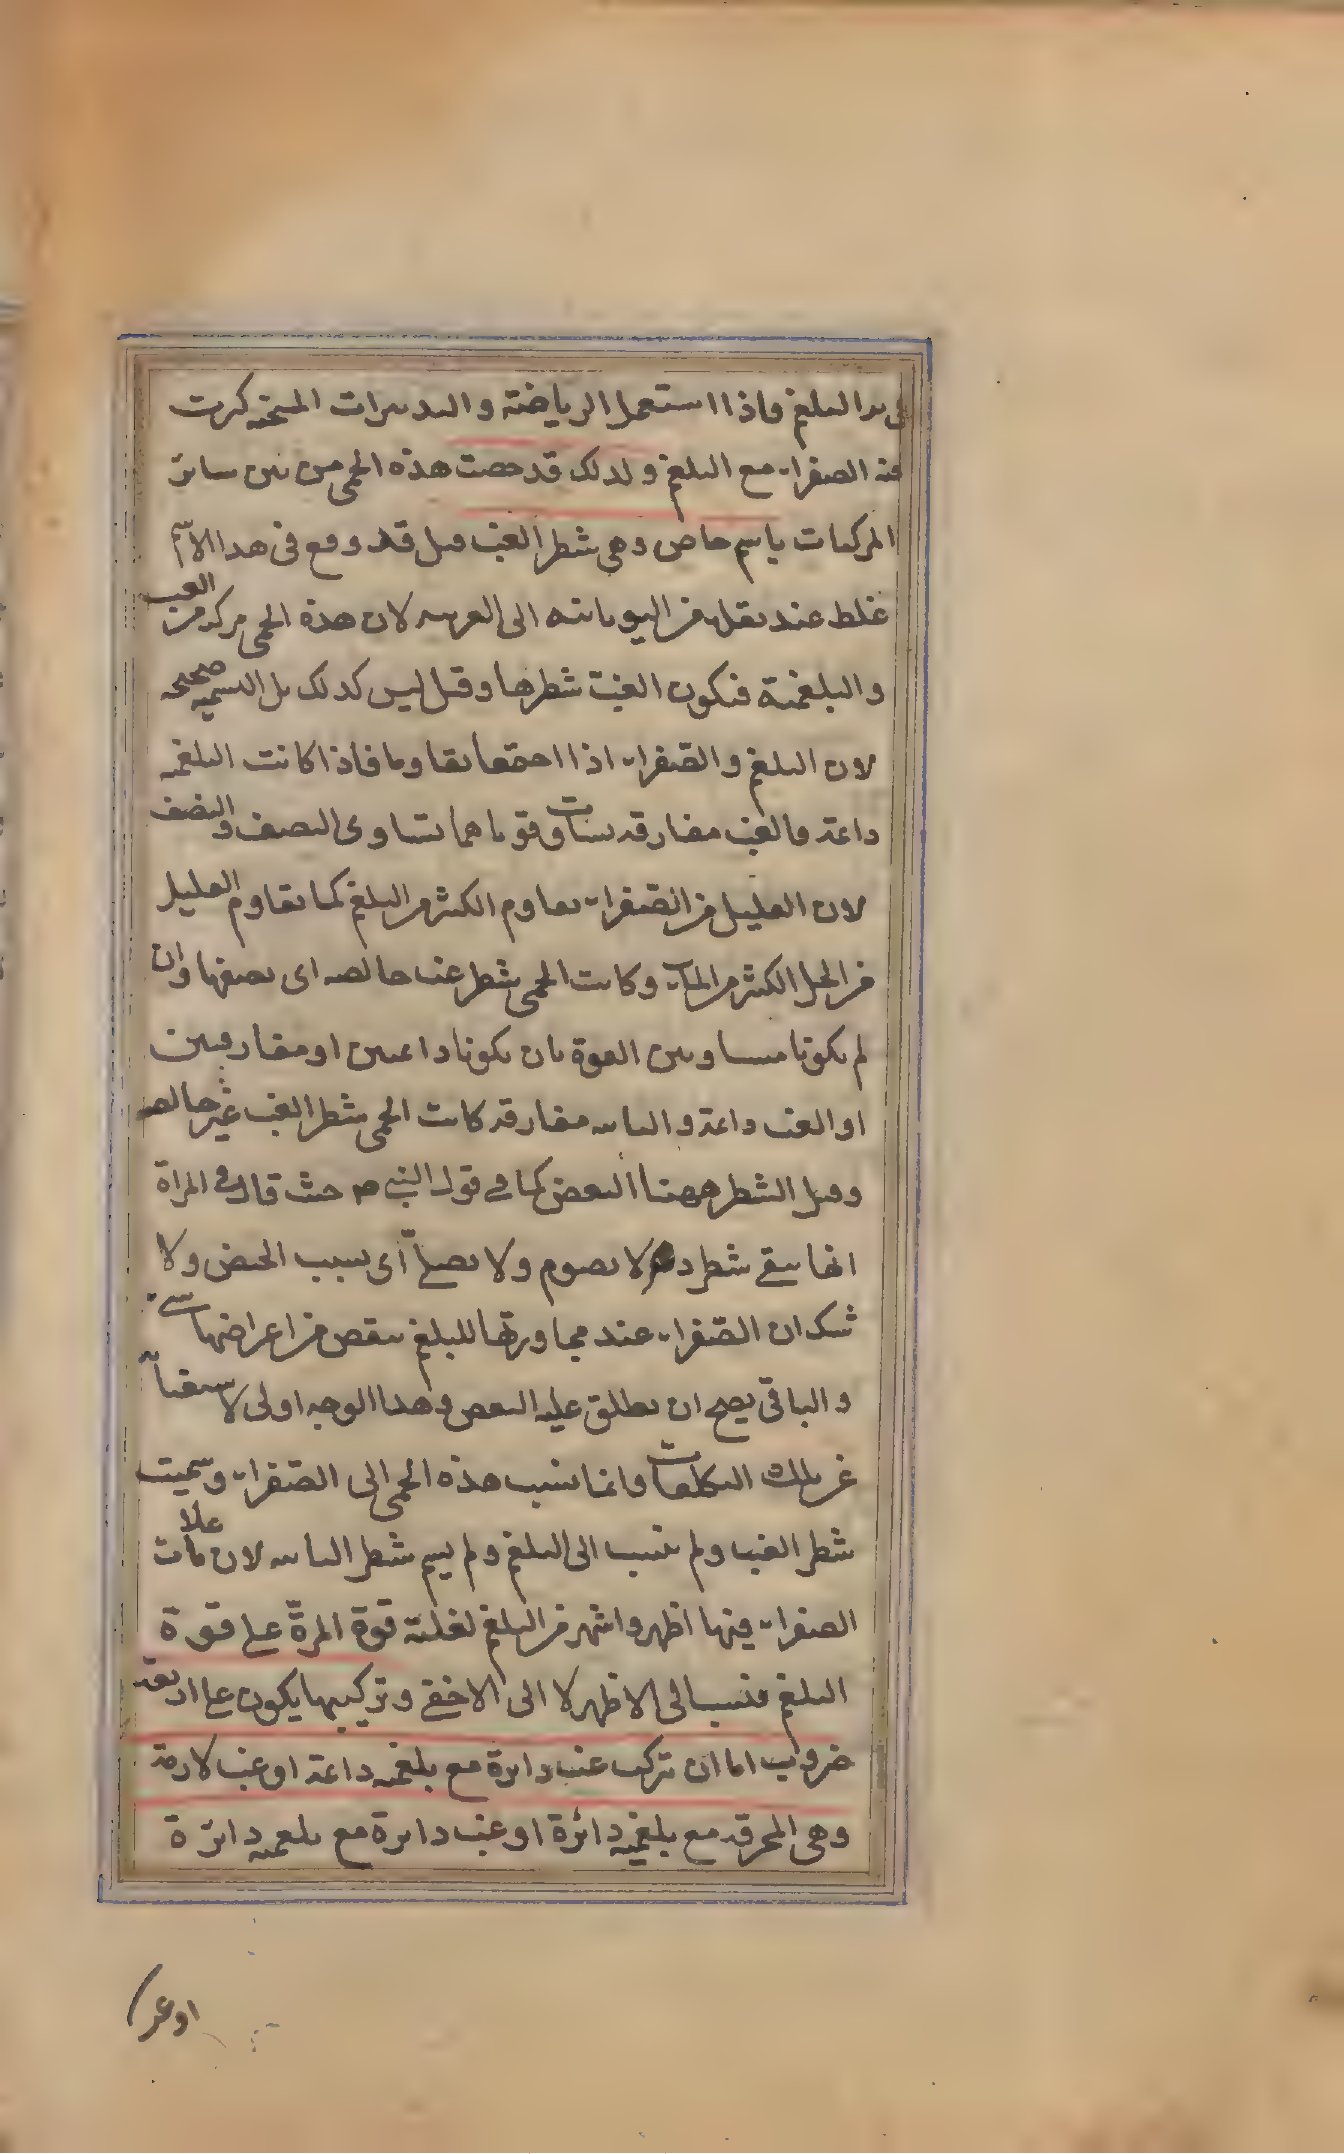 البلغم فاذا استعمل الرياضة و التدبيرات المسخنة كثرت
فيه الصفراء مع البلغم ولذلك قد خصت هذه الحمى من بين سائر
المركبات باسم خاص وهى شطر الغب وقيل قد وقع فى هذا الاسم
غلط عند نقله من اليونانية الى العربية لان هذه الحمى مركبة من الغب
والبلغمية فتكون الغب شطرها وقيل ليس كذلك بل التسمية صحيحة
لان البلغم والصفراء اذا اجتمعا تقاوما فاذا كانت البلغمية
دائمة والغب مفارقة تساوت قوتاهما تساوى النصف والنصف
لان القليل من الصفراء يقاوم الكثير من البلغم كما يقاوم القليل
من الخل الكثير من الماء وكانت الحمى شطر غب خالصة اى نصفها وان
لم يكونا متساويين القوة بان يكونا دائمين او مفارقين
او الغب دائمة والنائبة مفارقة كانت الحمى شطر الغب غير خالصة
وقيل الشطر ههنا البعض كما في قول النبي ص حيث قال في المراة
انها تبقى شطر دهرها لا تصوم ولا تصلى اى بسبب الحيض ولا
شك ان الصفراء عند مجاورتها للبلغم ينقص من اعراضها شىء
والباقى يصح ان يطلق عليه البعض وهذا الوجه اولى لاستغنائه
عن تلك التكلفات وانما نسب هذه الحمى الى الصفراء وسميت
شطر الغب ولم تنسب الى البلغم ولم يسم شطر النائبة لان علامات
الصفراء فيها اظهر واشهر من البلغم لغلبة قوة المرة على قوة
البلغم فنسب الى الاظهر لا الى الاخفى وتركيبها يكون على اربعة
ضروب اما ان تركب غب دائرة مع بلغمية دائمة او غب لازمة
وهى المحرقة مع بلغمية دائرة او غب دائرة مع بلغمية دائرة
او غب